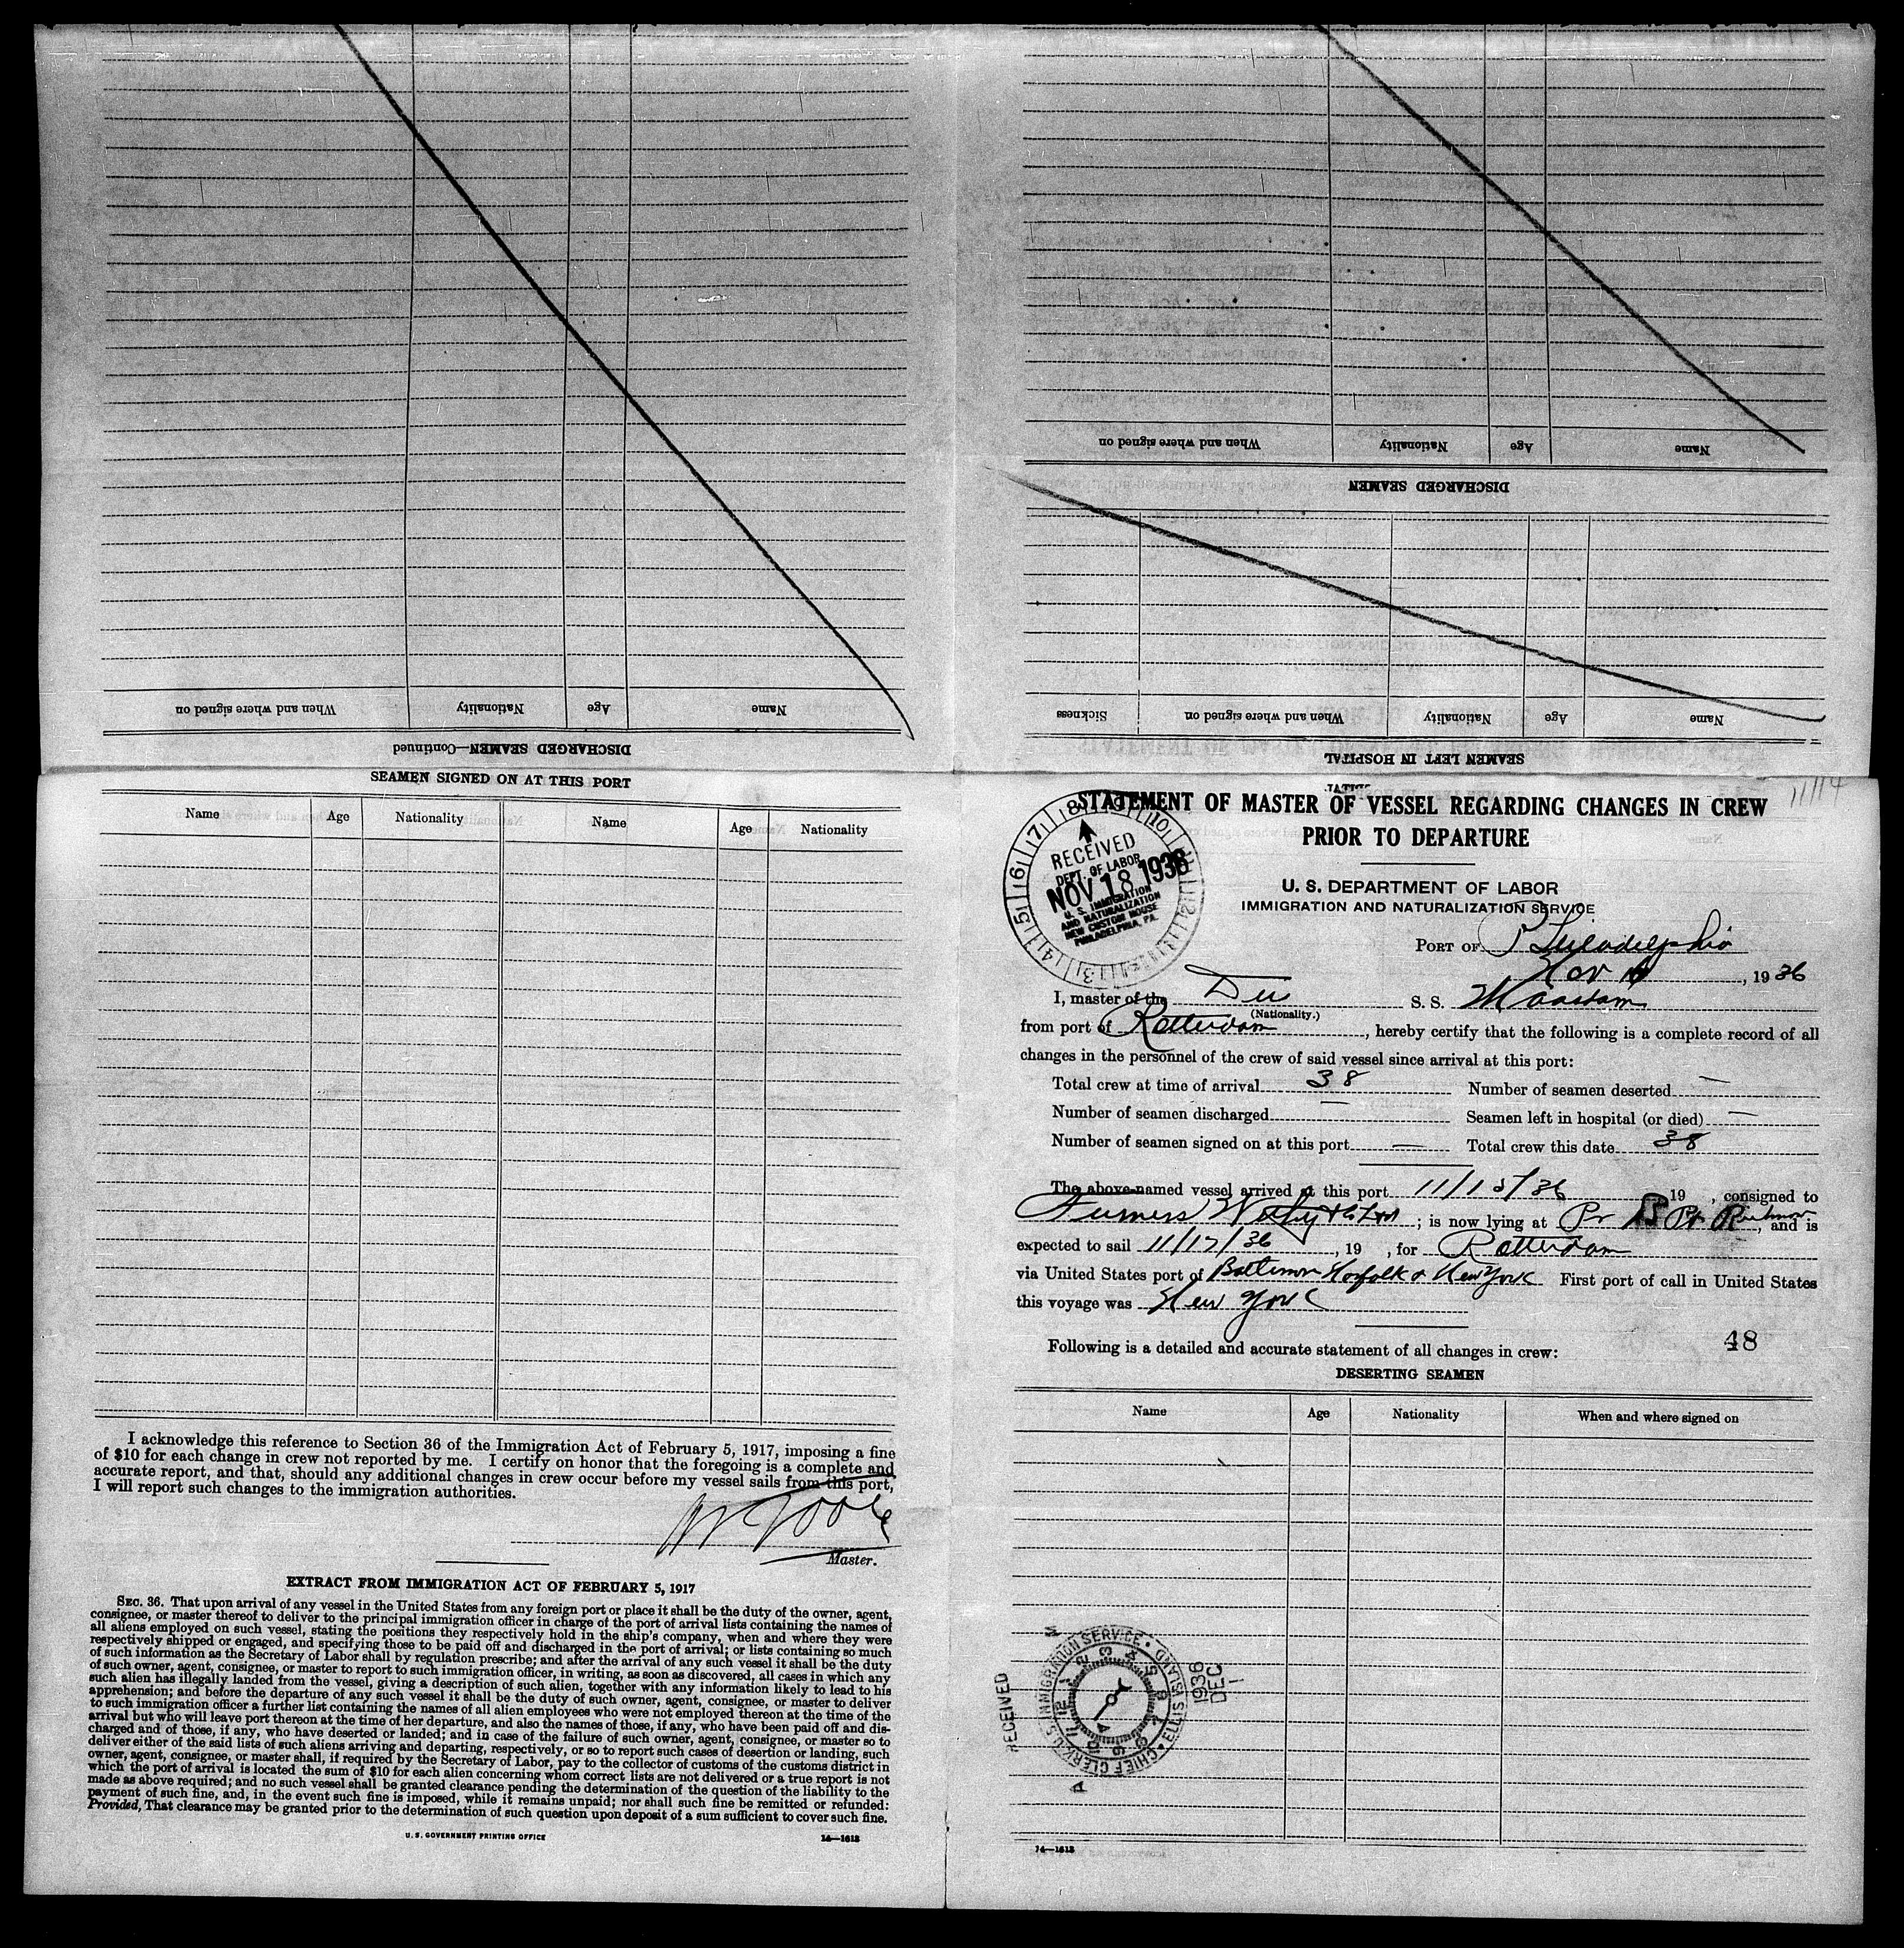 When and where signed on
Nationality
Age
Name
DISCHARGED SEAMEN—Continued
When and where signed on
Nationality
Age
Name
DISCHARGED SEAMEN
Sickness
When and where signed on
Nationality
Age
Name
SEAMEN LEFT IN HOSPITAL
SEAMEN SIGNED ON AT THIS PORT
Name Age Nationality Name Age Nationality
I acknowledge this reference to Section 36 of the Immigration Act of February 5, 1917, imposing a fine
of $10 for each change in crew not reported by me. I certify on honor that the foregoing is a complete and
accurate report, and that, should any additional changes in crew occur before my vessel sails from this port,
I will report such changes to the immigration authorities.
Master.
EXTRACT FROM IMMIGRATION ACT OF FEBRUARY 5, 1917
SEC. 36. That upon arrival of any vessel in the United States from any foreign port or place it shall be the duty of the owner, agent,
consignee, or master thereof to deliver to the principal immigration officer in charge of the port of arrival lists containing the names of
all aliens employed on such vessel, stating the positions they respectively hold in the ship's company, when and where they were
respectively shipped or engaged, and specifying those to be paid off and discharged in the port of arrival; or lists containing so much
of such information as the Secretary of Labor shall by regulation prescribe; and after the arrival of any such vessel it shall be the duty
of such owner, agent, consignee, or master to report to such immigration officer, in writing, as soon as discovered, all cases in which any
such alien has illegally landed from the vessel, giving a description of such alien, together with any information likely to lead to his
apprehension; and before the departure of any such vessel it shall be the duty of such owner, agent, consignee, or master to deliver
to such immigration officer a further list containing the names of all alien employees who were not employed thereon at the time of the
arrival but who will leave port thereon at the time of her departure, and also the names of those, if any, who have been paid off and dis-
charged and of those, if any, who have deserted or landed; and in case of the failure of such owner, agent, consignee, or master so to
deliver either of the said lists of such aliens arriving and departing, respectively, or so to report such cases of desertion or landing, such
owner, agent, consignee, or master shall, if required by the Secretary of Labor, pay to the collector of customs of the customs district in
which the port of arrival is located the sum of $10 for each alien concerning whom correct lists are not delivered or a true report is not
made as above required; and no such vessel shall be granted clearance pending the determination of the question of the liability to the
payment of such fine, and, in the event such fine is imposed, while it remains unpaid; nor shall such fine be remitted or refunded:
Provided, That clearance may be granted prior to the determination of such question upon deposit of a sum sufficient to cover such fine.
U. S. GOVERNMENT PRINTING OFFICE 14—1613
STATEMENT OF MASTER OF VESSEL REGARDING CHANGES IN CREW
PRIOR TO DEPARTURE
RECEIVED
DEPT. OF LABOR
NOV 18 1936
U. S. IMMIGRATION
AND NATURALIZATION
NEW CUSTOM HOUSE
PHILADELPHIA, PA.
U. S. DEPARTMENT OF LABOR
IMMIGRATION AND NATURALIZATION SERVICE
PORT OF Philadelphia
Nov , 1936
I, master of the Du S. S. Maasdam
(Nationality.)
from port of Rotterdam, hereby certify that the following is a complete record of all
changes in the personnel of the crew of said vessel since arrival at this port:
Total crew at time of arrival 38 Number of seamen deserted —
Number of seamen discharged — Seamen left in hospital (or died) —
Number of seamen signed on at this port — Total crew this date 38
The above-named vessel arrived at this port 11/15/36 19 , consigned to
Furness Withy & Co Ltd ; is now lying at Pr Pt , and is
expected to sail 11/17/36, 19 , for Rotterdam
via United States port of Baltimore Norfolk & New York First port of call in United States
this voyage was New York
Following is a detailed and accurate statement of all changes in crew: 48
DESERTING SEAMEN
Name Age Nationality When and where signed on
RECEIVED
U. S. IMMIGRATION SERVICE • ELLIS ISLAND • CHIEF CLERK
1936
DEC
1
14—1613